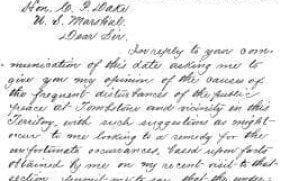 Hon. C. P. Dake
U. S. Marshal.
Dear Sir.
In reply to your com-
munication of this date asking me to
give you my opinion of the causes of
the frequent disturbances of the public
peace at Tombstone and vicinity in this
Territory, with such suggestions as might
occur to me looking to a remedy for the
unfortunate occurrences, based upon facts
obtained by me on my recent visit to that
section permit me to say that the under-